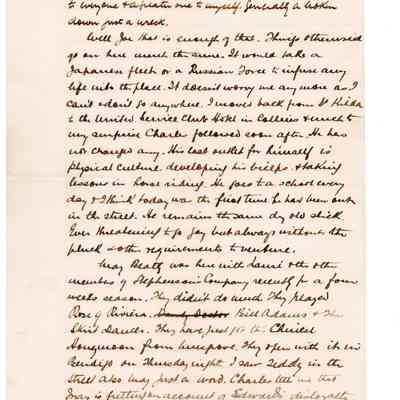 to everyone & a greater one to myself. Generally a broken
down just a wreck.
Well Joe that is enough of that. Things otherwise
go on here much the same. It would take a
Japanese fleet or a Russian Force to infuse any
life into the place. It doesn't worry me any more as I
can't & don't go anywhere. I moved back from St Kilda
to the United Service Club Hotel in Collins & much to
my surprise Charles followed soon after. He has
not changed any. His last outlet for himself is
physical culture developing his biceps & taking
lessons in horse riding. He goes to a school every
day & I think today was the first time he has been out
in the street. He remains the same dry old stick
Ever threatening to go gay but always without the
pluck & other requirements to venture.
May Beatty was here with Lauri & the other
members of Stephenson's Company recently for a four
weeks season. They didn't do much They played
Rose of Riviera. Dandy Doctor Bill Adams & The
Skirt Dancer. They have just got the Chinese
Honeymoon from . They open with it in
Bendigo on Thursday night. I saw Teddy in the
street also May just a word. Charles tell me that
May is fretting on account of Edward's disloyalty